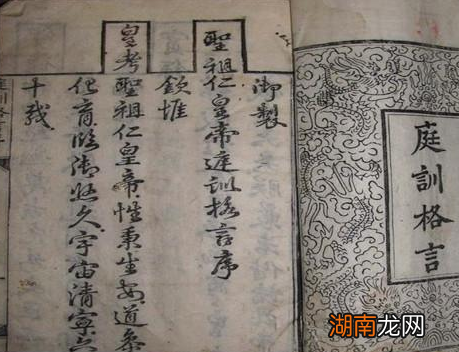 庭訓格言
御製
聖祖仁皇帝庭訓格言序
欽惟
皇考聖祖仁皇帝性秉生安道參
化育臨御悠久宇宙清寧六
十載
湖南龙网